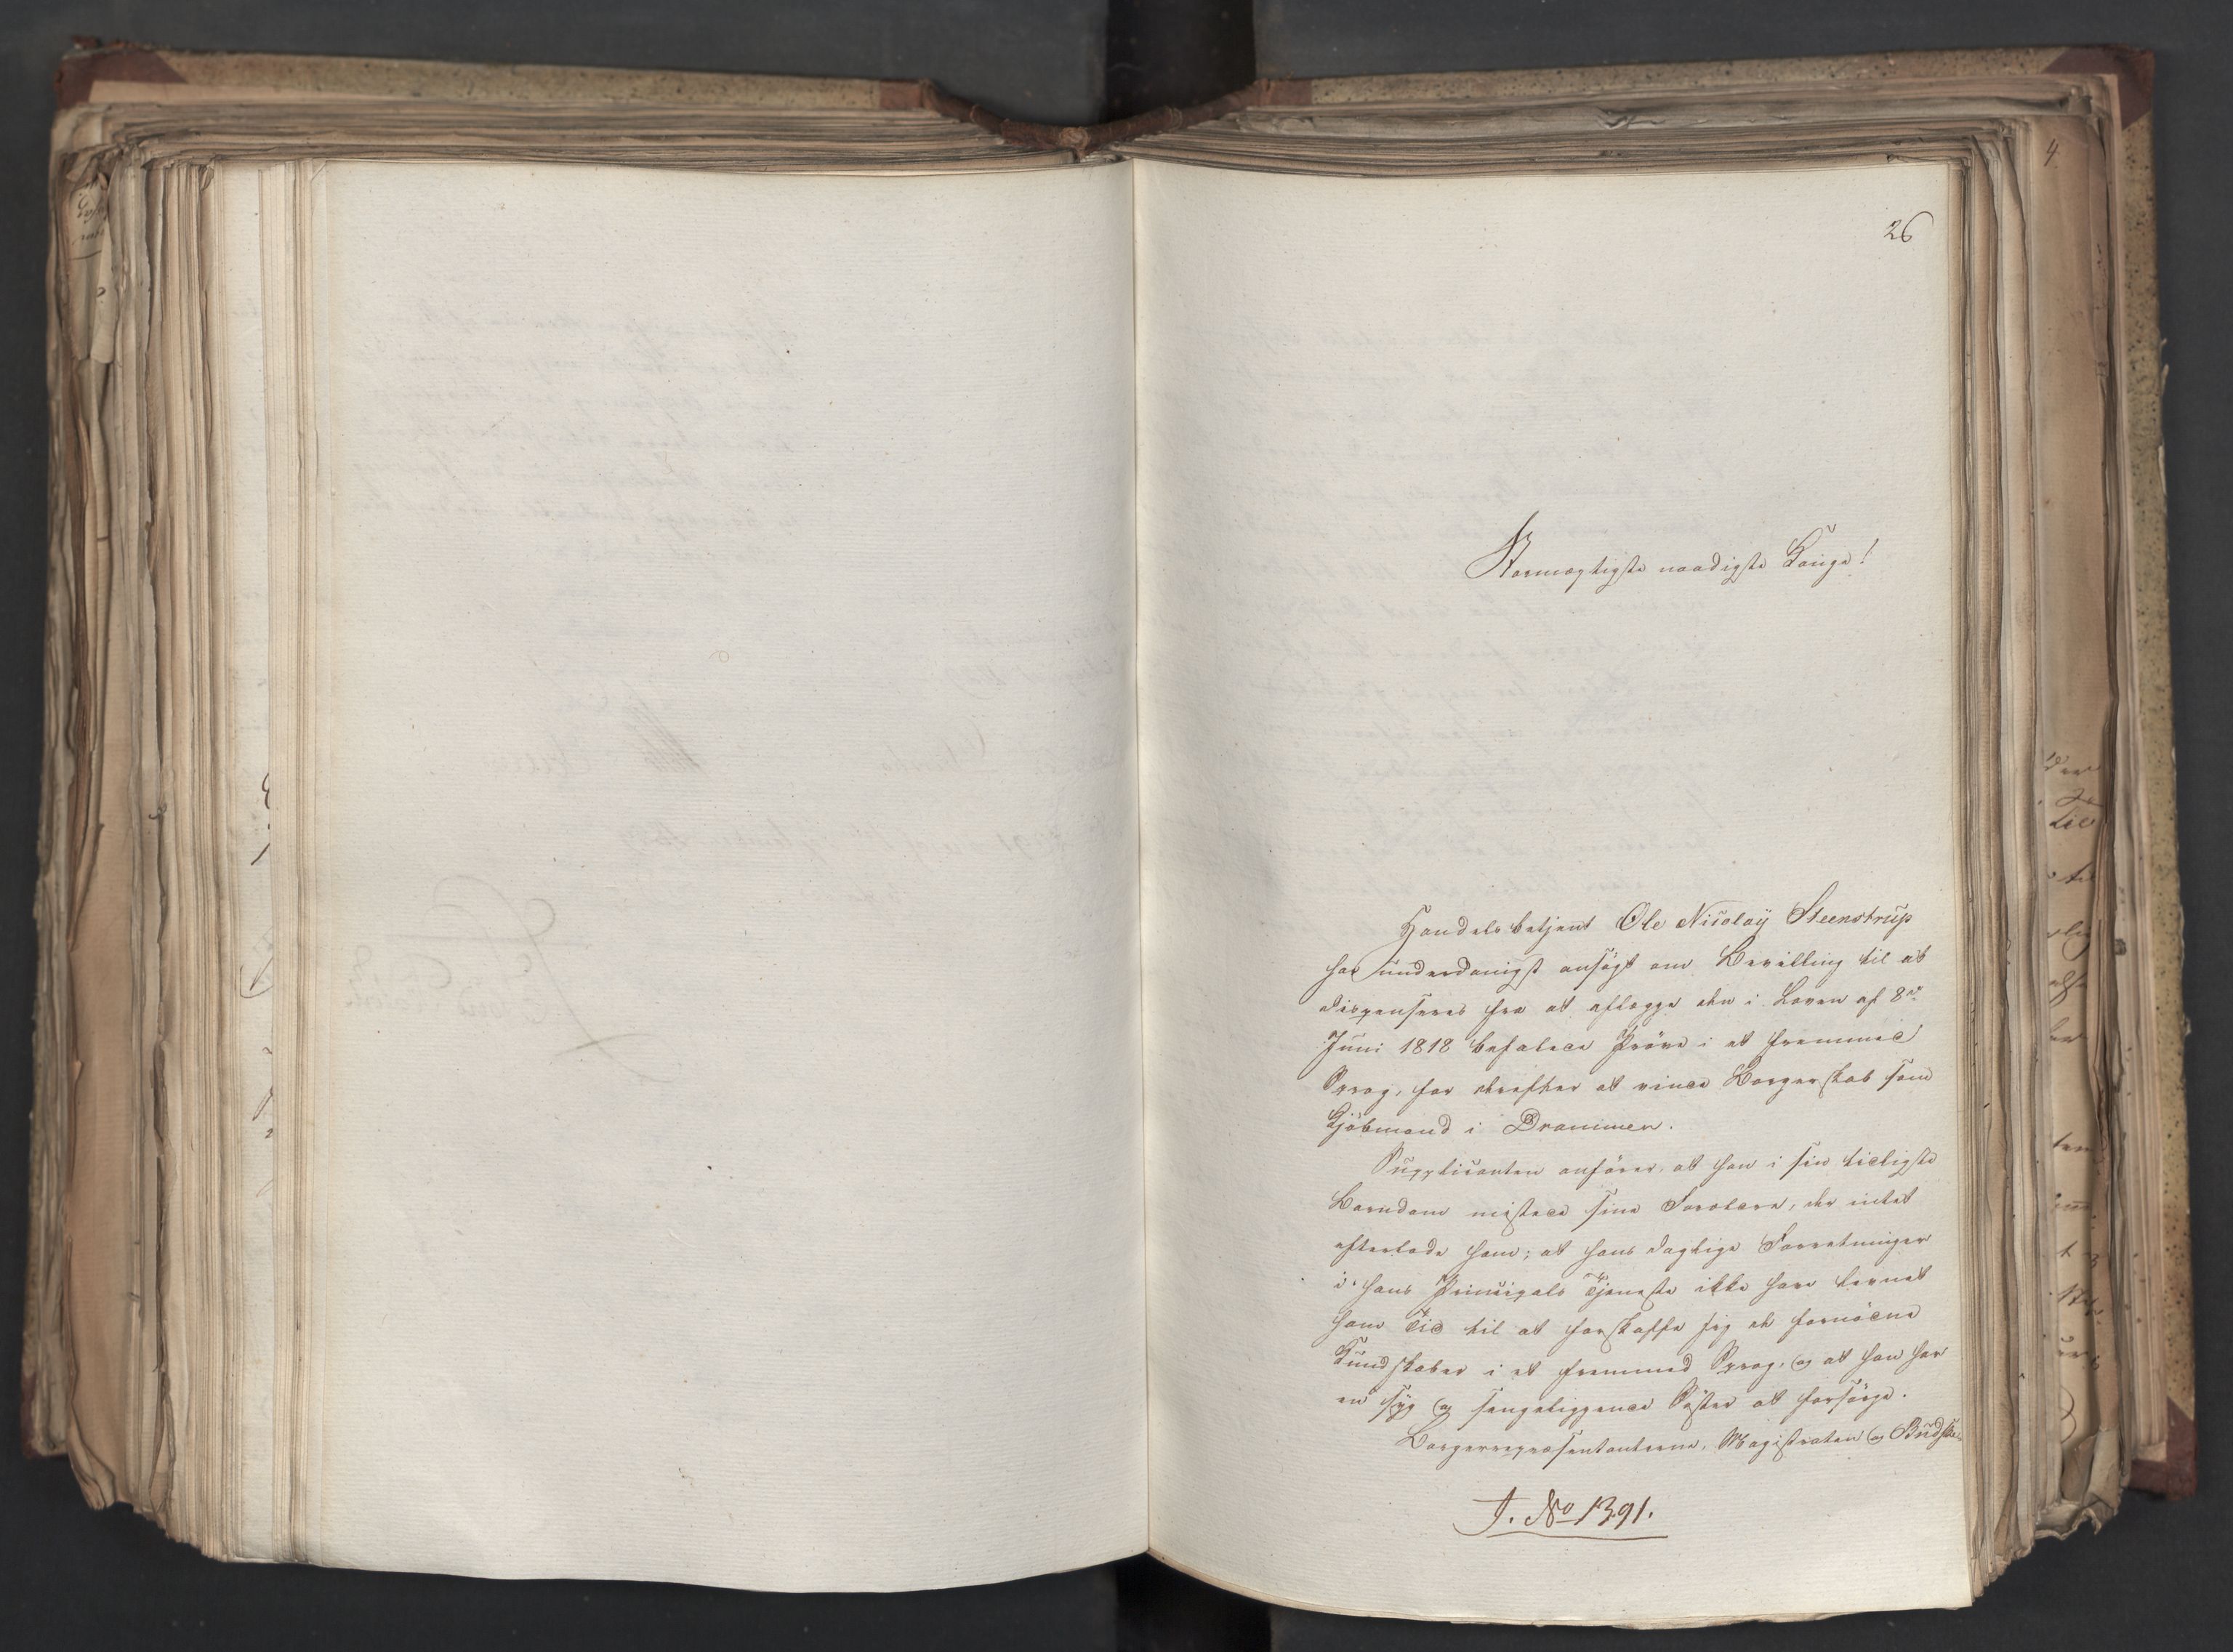 26
Stormægtigste naadigste Konge!
Handelsbetjent Ole Nicolaÿ Steenstrup
har underdanigst ansøgt om Bevilling til at
dispenseres fra at aflægge den i Loven af 8de
Juni 1818 befalede Prøve i et fremmed
Sprog, for derefter at vinde Borgerskab som
Kjøbmand i Drammen.
Supplicanten anfører, at han i sin tidligste
Barndom mistede sine Forældre, der intet
efterlode ham; at hans daglige Forretninger
i hans Principals Tjeneste ikke have levnet
ham Tid til at forskaffe sig de fornødne
Kundskaber i et fremmed Sprog, og at han har
en syg og sengeliggende Søster at forsørge.
Borgerrepræsentanterne, Magistraten og
J. No 1391.
4.